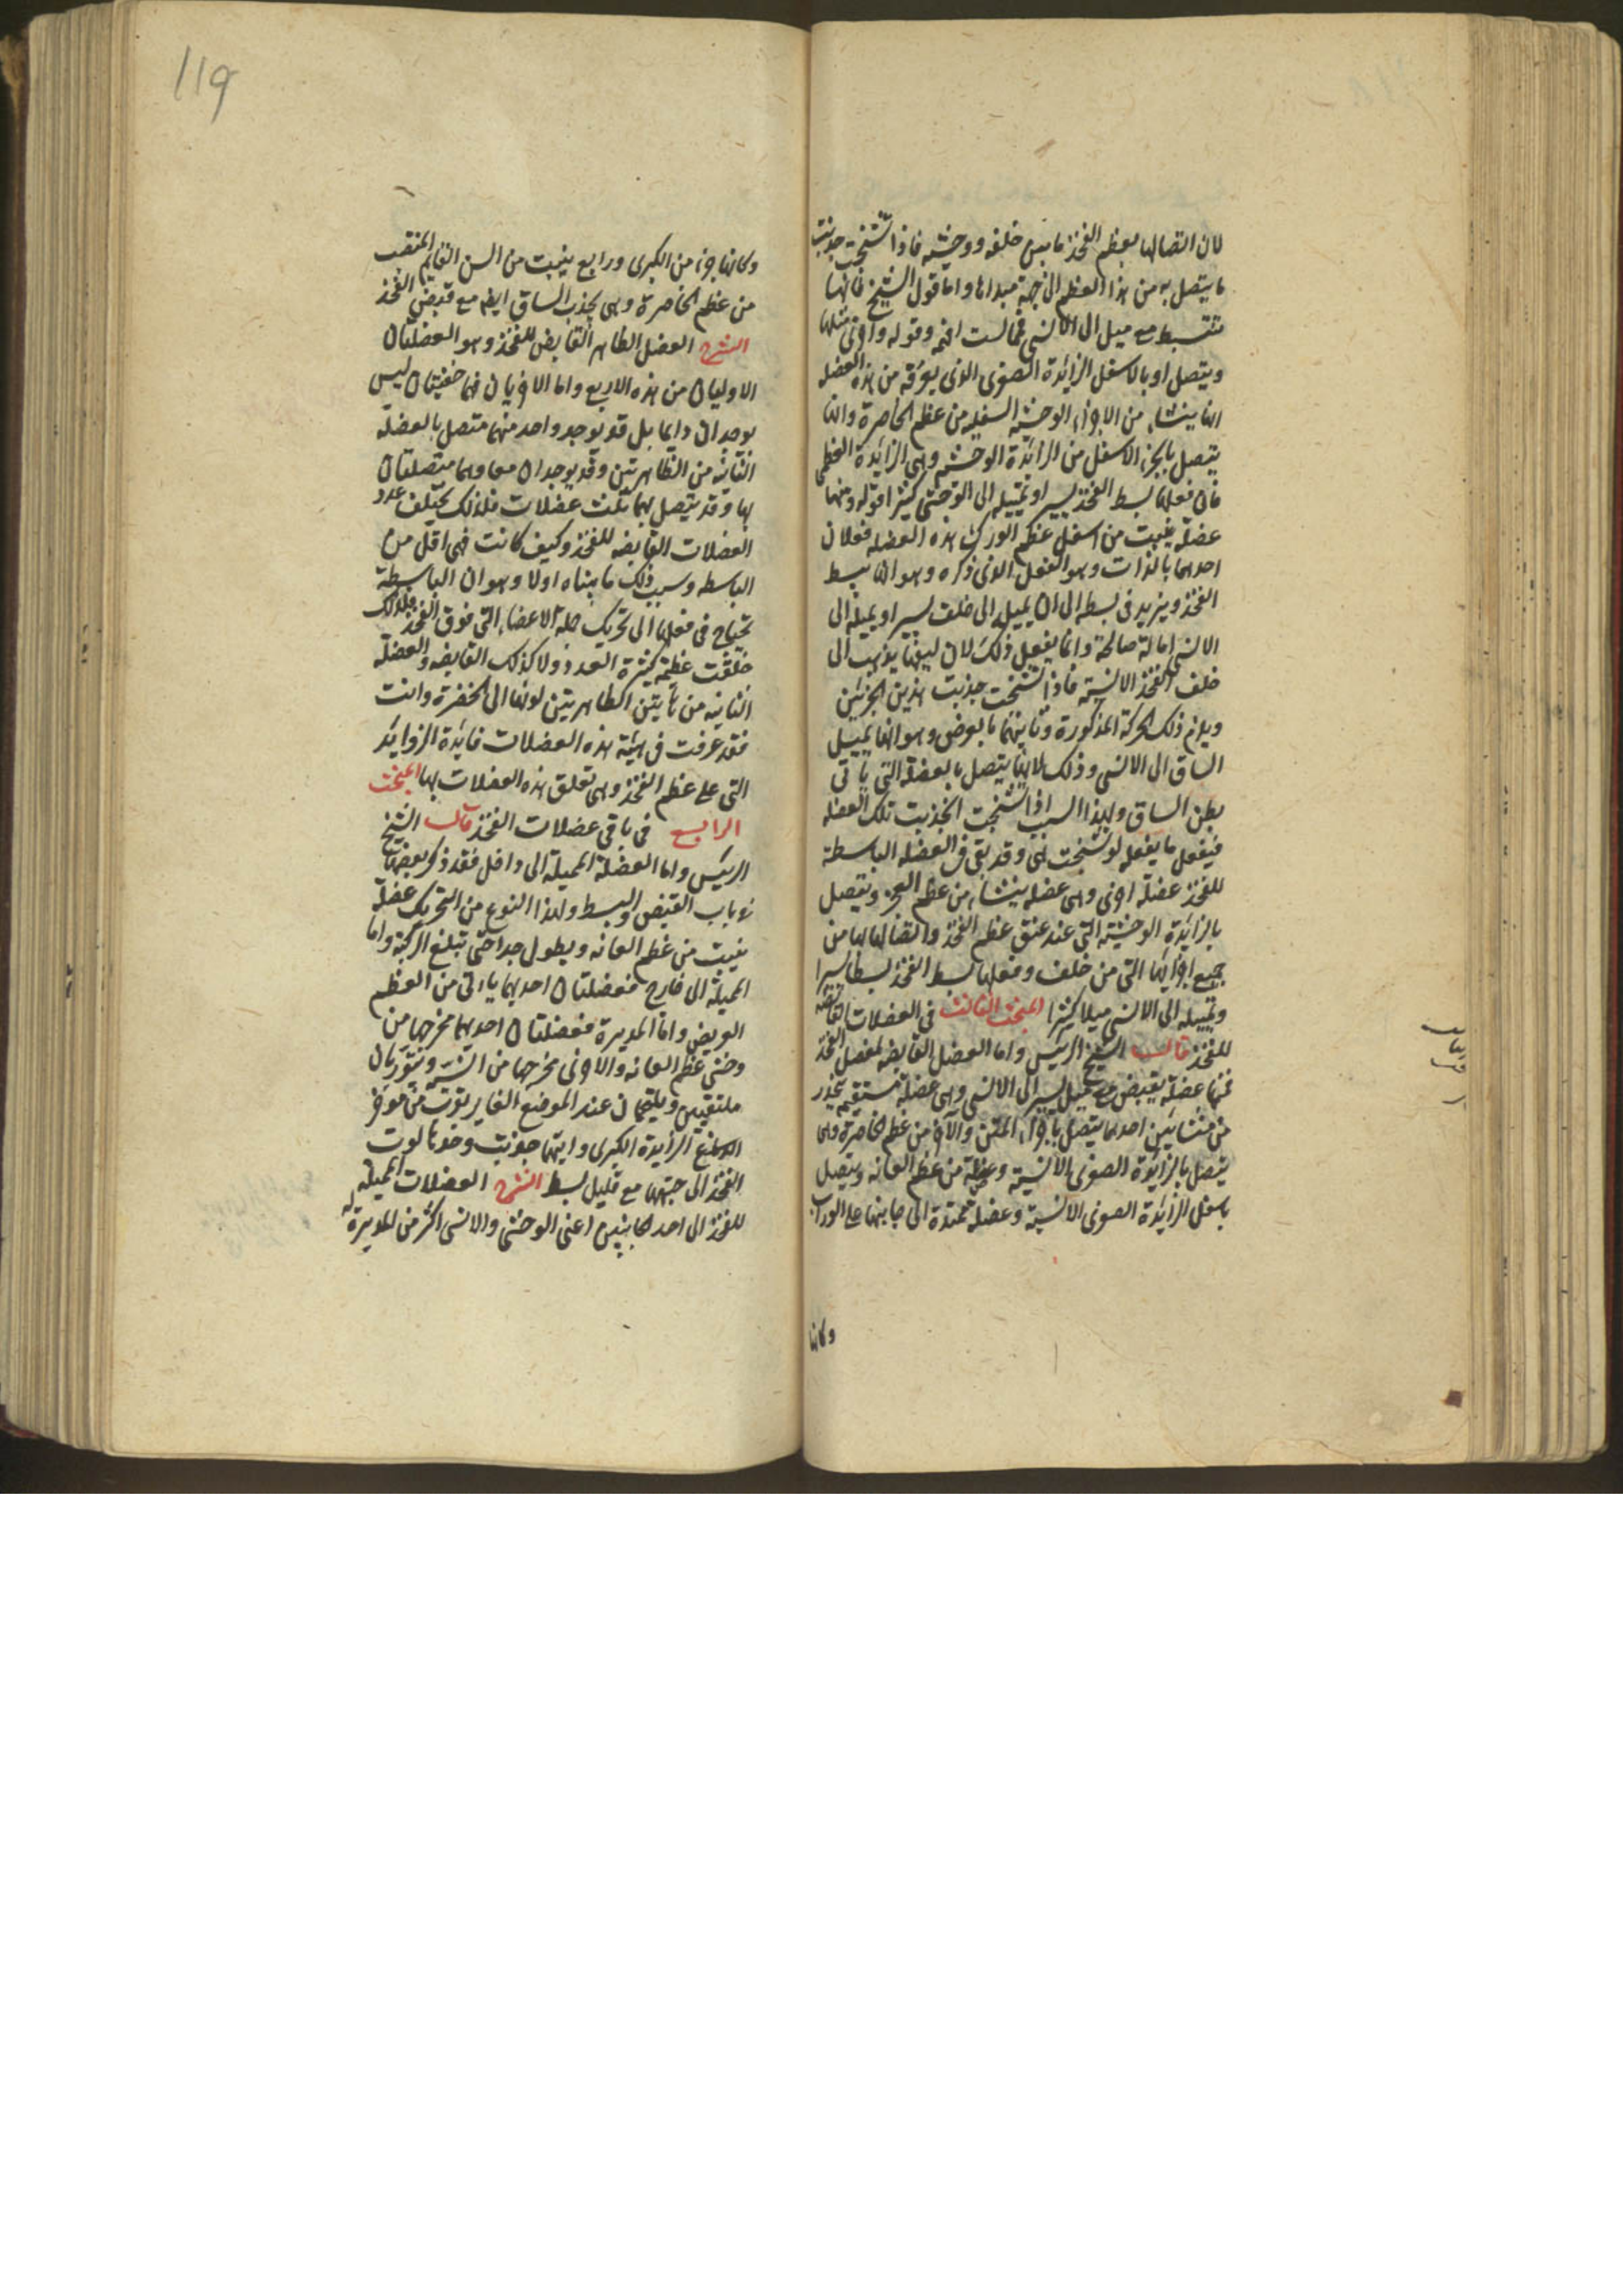 لان اتصالها بعظم الفخذ ما بين خلفه ووحشيه فاذا تشنجت جذبت
ما يتصل به من هذا العظم الى جهة مبداها واما قول الشيخ فانها
تنبسط مع ميل الى الانسي فمالست افهمه وقوله واخرى مثلها
ويتصل او بالاسفل الزائدة الصغرى الذى يعرفه من هذه العضله
انها ينشا من الاجزاء الوحشيه السفليه من عظم الخاصرة وانها
يتصل بالجزء الاسفل من الزائدة الوحشيه وهى الزائدة العظمى
فان فعلها بسط الفخذ يسيرا وتميله الى الوحشى كثيرا قوله ومنها
عضله ينبت من اسفل عظم الورك هذه العضله فعلان
احدهما بالذات وهو الفعل الذى ذكره وهو ان يبسط
الفخذ ويزيد فى بسطه الى ان يميله الى خلف يسيرا ويميله الى
الانسي امالة صالحة وانما يفعل ذلك لان ليفها يذهب الى
خلف الفخذ الانسيه فاذا تشنجت جذبت هذين الجزئين
ويلزم ذلك الحركة المذكورة وثانيهما بالعرض وهو انها يميل
الساق الى الانسى وذلك لانها يتصل بالعضلة التى ياتى
بطن الساق ولهذا السبب اذا تشنجت انجذبت تلك العضله
فيفعل ما يفعله لو تشنجت هى وقد بقى فى العضله الباسطة
للفخذ عضلة اخرى وهى عضله ينشا من عظم العجز ويتصل
بالزائدة الوحشيه التى عند عنق عظم الفخذ واتصالها لها من
جميع اجزائها التى من خلف وفعلها بسط الفخذ بسطا يسيرا
وتميله الى الانسى ميلا كثيرا المبحث الثالث فى العضلات القابضه
للفخذ قال الشيخ الرئيس واما العضل القابضه لمفصل الفخذ
فمنها عضلة يقبض مع ميل يسير الى الانسى وهى عضلة مستقيمه ينحدر
من منشائين احدهما يتصل باجزاء المتن والآخر من عظم الخاصرة وهى
يتصل بالزائدة الصغرى الانسية وعضلة من عظم العانه ويتصل
باسفل الزائدة الصغرى الانسية وعضلة ممتدة الى جانبها على الوراب
وكانها
وكانها جزء من الكبرى ورابع ينبت من السن القايم المنتصب
من عظم الخاصرة وهى يجذب الساق ايضا مع قبض الفخذ
الشرح العضل الظاهر القابض للفخذ وهو العضلتان
الاوليان من هذه الاربع واما الاخريان فهما خفيتان ليس
يوجدان دايما بل قد يوجد واحد منهما متصل بالعضلة
الثانيه من الظاهرتين وقد يوجدان معا وهما متصلتان
بها وقد يتصل بهما ثلث عضلات فلذلك يختلف عدد
العضلات القابضه للفخذ وكيف كانت فهى اقل من
الباسطه وسبب ذلك ما بيناه اولا وهو ان الباسطة
تحتاج فى فعلها الى تحريك جملة الاعضاء التى فوق الفخذ فلذلك
خلقت عظيمه كثيرة العدد ولا كذلك القابضه والعضلة
الثانيه من هاتين الظاهرتين لونها الى الخضرة وانت
فقد عرفت فى هيئة هذه العضلات فايدة الزوايد
التى على عظم الفخذ وهى تعلق هذه العضلات بها المبحث
الرابع فى باقى عضلات الفخذ قال الشيخ
الرئيس واما العضلة المميلة الى داخل فقد ذكر بعضها
فى باب القبض والبسط ولهذا النوع من التحريك عضلة
ينبت من عظم العانه ويطول جدا حتى تبلغ الركبة واما
المميلة الى خارج فعضلتان احديهما ياتى من العظم
العريض واما المديرة فعضلتان احديهما مخرجها من
وحشى عظم العانه والاخرى مخرجها من انسيه ويتوربان
ملتقيين ويلتحمان عند الموضع الغاير بقرب من مؤخر
الزايدة الكبرى وايتهما جذبت وحدها لوت
الفخذ الى جهتها مع قليل بسط الشرح العضلات المميله
للفخذ الى احد الجانبين اعنى الوحشى والانسى اكثر من المديرة له
119